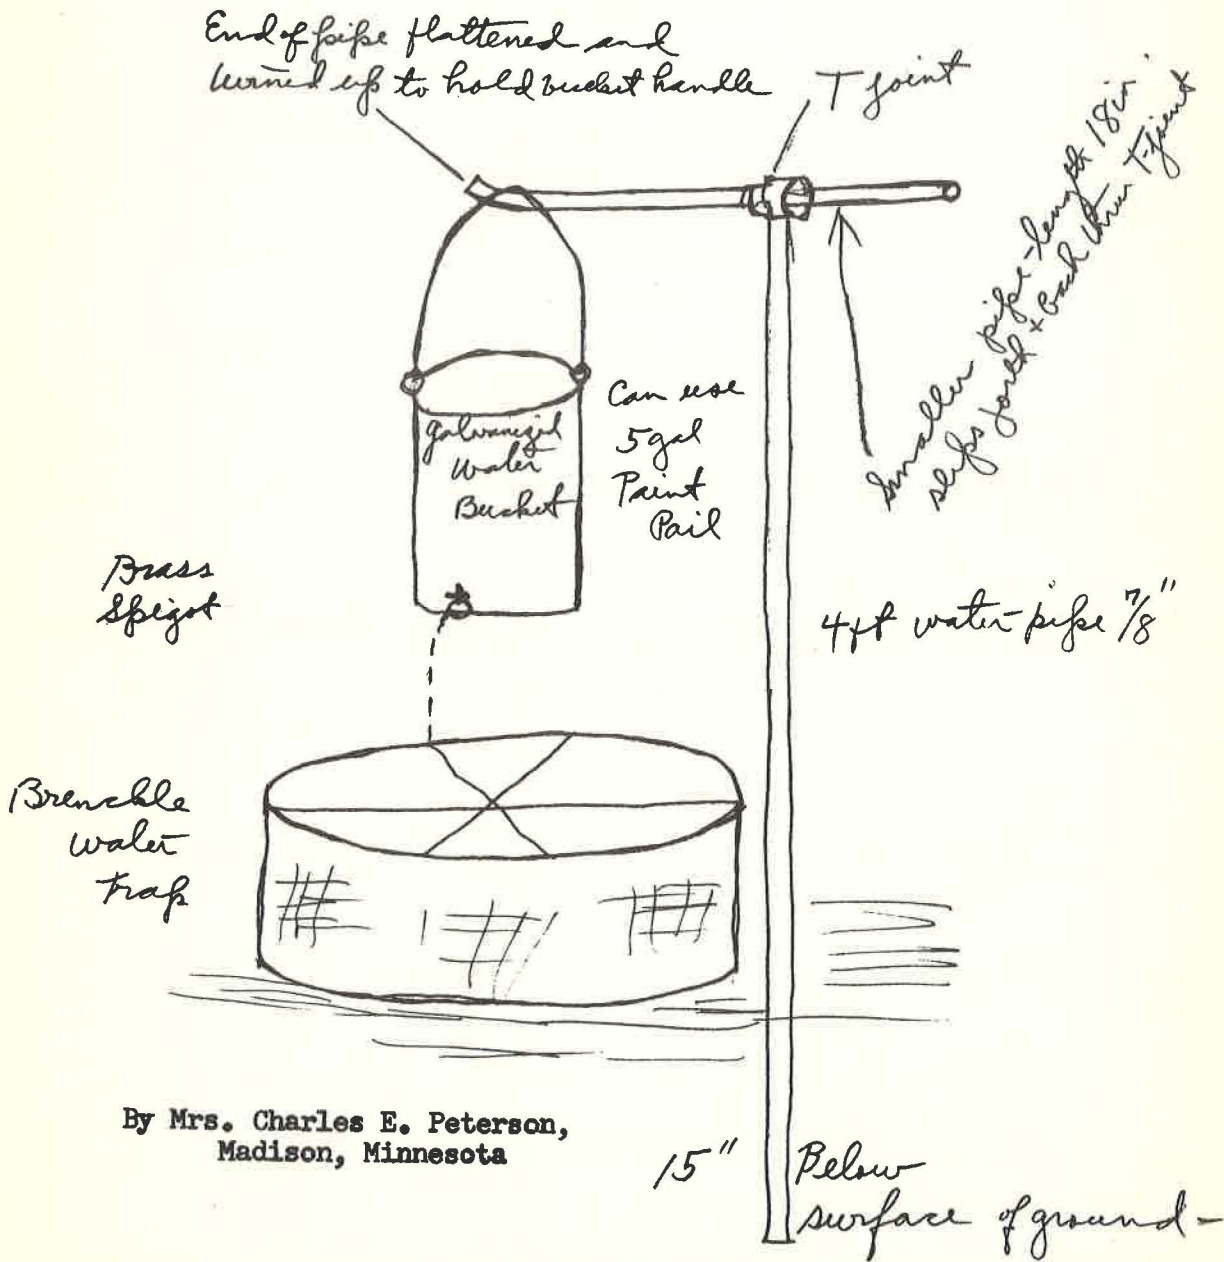 End of pipe flattened and
turned up to hold bucket handle
T joint
Smaller pipe-length 18in
slips forth + back thru T-joint
Can use
5 gal
Paint
Pail
galvanized
Water
Bucket
Brass
Spigot
4 ft water pipe 7/8"
Brenckle
water
trap
By Mrs. Charles E. Peterson,
Madison, Minnesota
15" Below
surface of ground-